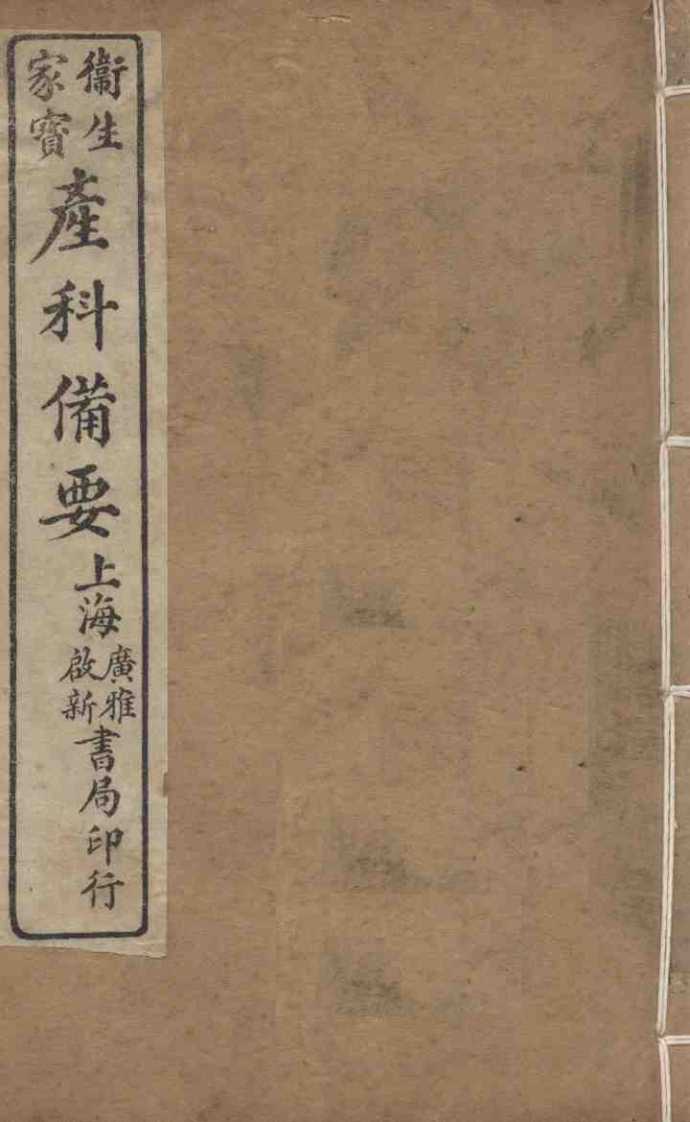 衞生
家寳
產科備要
上海
廣雅
啟新
書局印行